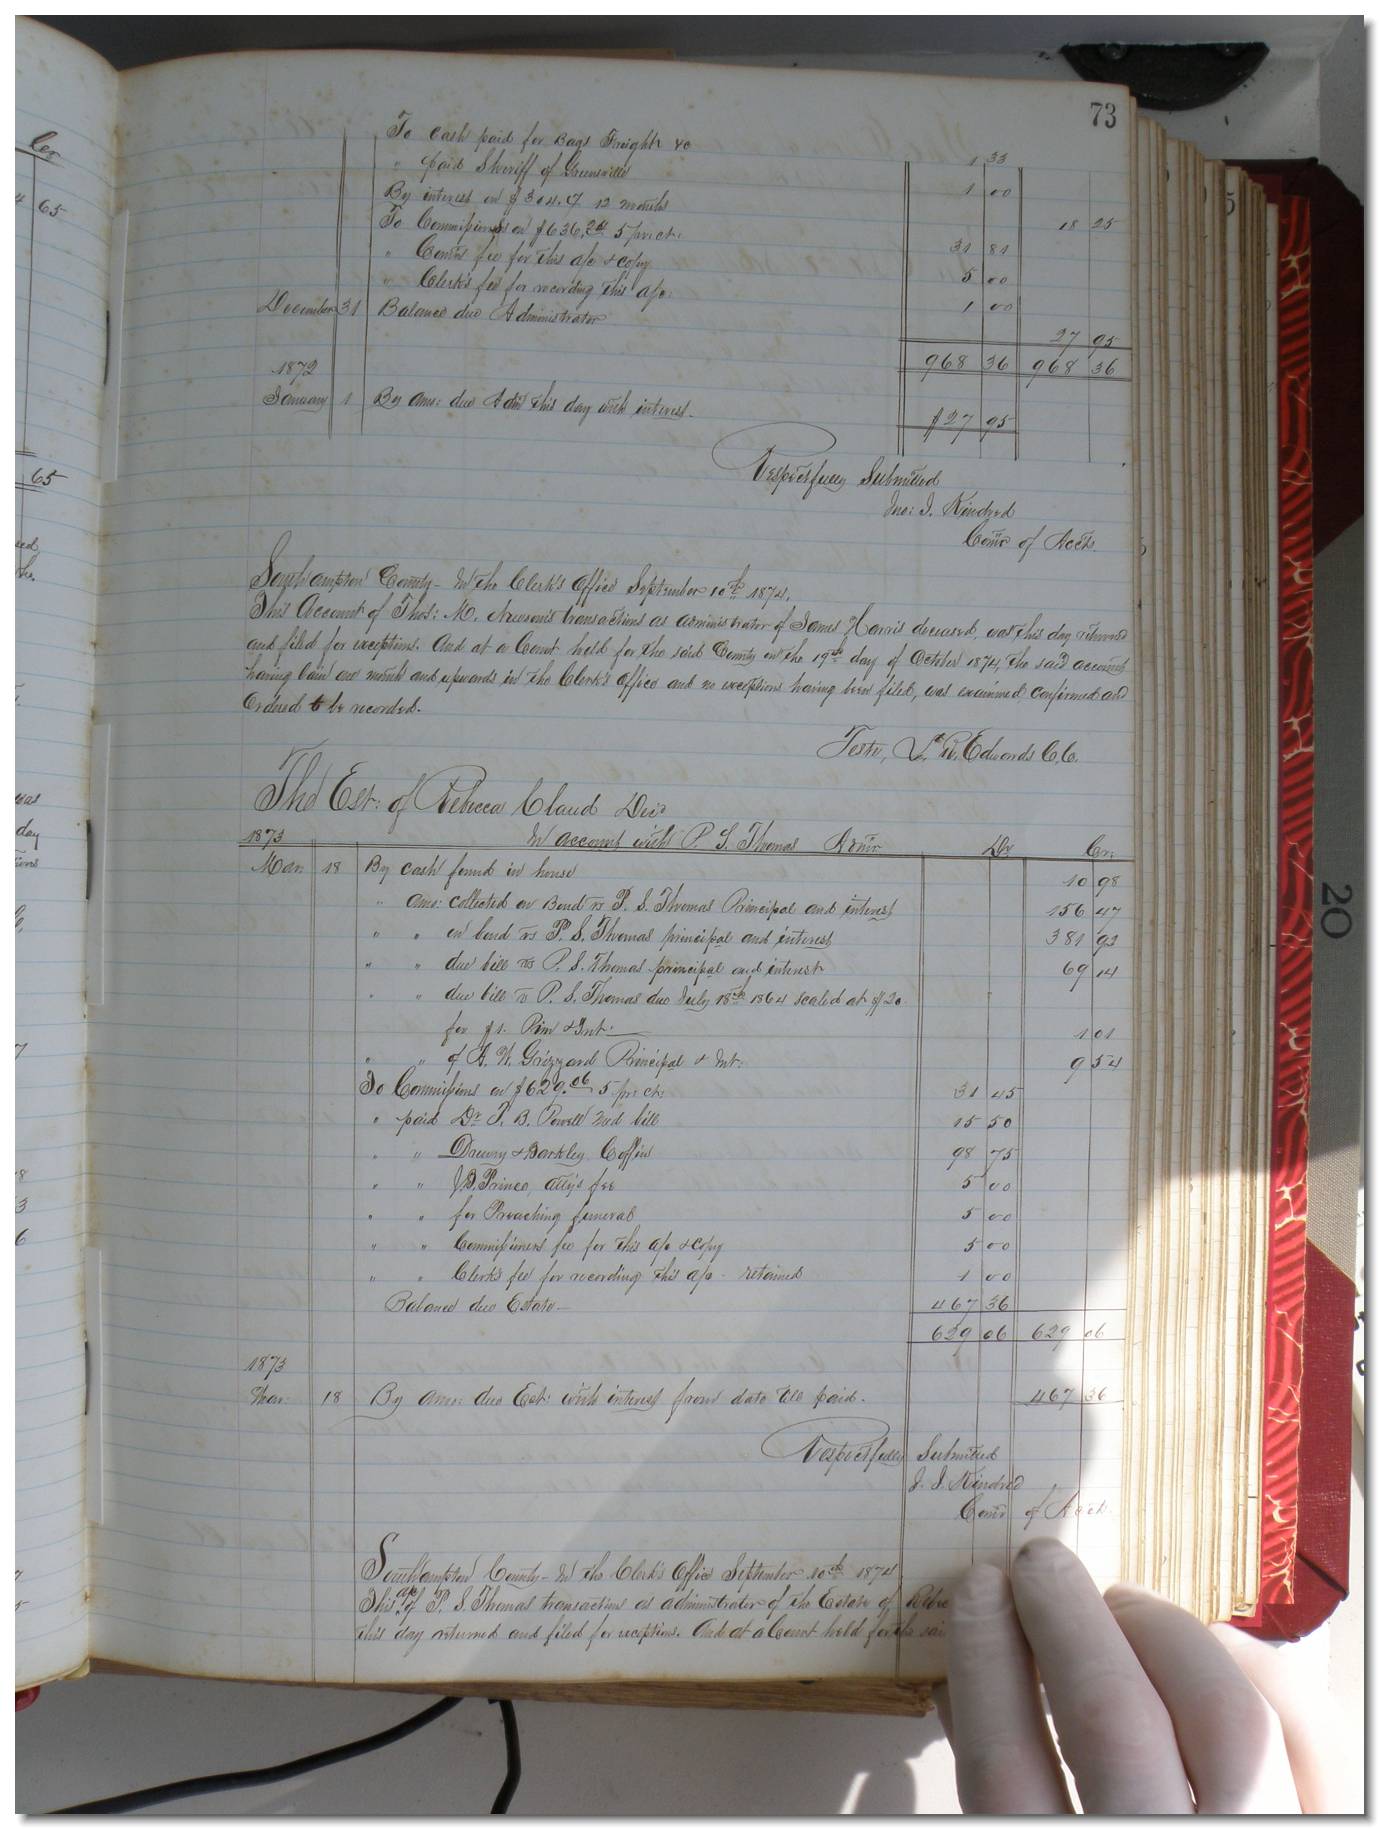 73
Cr
4 65
65
To Cash paid for Bags Freight &c 1 33
" paid Sheriff of Greensville 1 00
By interest on $304.17 12 months 18 25
To Commissions on $636.24 5 pr. ct. 31 81
" Comrs fee for this a/c & copy 5 00
" Clerk's fee for recording this a/c. 1 00
December 31 Balance due Administrator 27 95
968 36 968 36
1872
January 1 By amo: due Admr this day with interest. $27 95
Respectfully Submitted
Jno: J. Kindred
Comr of Accts.
Southampton County - In the Clerk's Office September 10th 1874.
This Account of Thos: M. Newsom's transactions as administrator of James Harris deceased, was this day returned
and filed for exceptions. And at a Court held for the said County on the 19th day of October 1874, the said account
having lain one month and upwards in the Clerk's office and no exceptions having been filed, was examined, confirmed and
Ordered to be recorded.
Teste, L. R. Edwards C. C.
The Est: of Rebecca Claud Decd
1873 In account with P. S. Thomas Admr Dr Cr.
Mar: 18 By cash found in house 10 98
" amo: collected on Bond vs P. S. Thomas Principal and interest 156 47
" " on bond vs P. S. Thomas principal and interest 381 92
" " due bill vs P. S. Thomas principal and interest 69 14
" " due bill vs P. S. Thomas due July 18th 1864 scaled at $20
for $1. Prin & Int. 1 01
" " of A. W. Grizzard Principal & Int: 9 54
To Commissions on $629.06 5 pr. ct. 31 45
" paid Dr T. B. Powell Med bill 15 50
" " Drewry & Barkley Coffin 98 75
" " J. B. Prince, atty's fee 5 00
" " for Preaching funeral 5 00
" " Commissioners fee for this a/c & copy 5 00
" " Clerk's fee for recording this a/c - retained 1 00
Balance due Estate 467 36
629 06 629 06
1873
Mar: 18 By amo: due Est: with interest from date till paid. 467 36
Respectfully Submitted
J. J. Kindred
Comr of Accts.
Southampton County - In the Clerk's Office September 10th 1874
This a/c of P. S. Thomas transactions as administrator of the Estate of Rebec
this day returned and filed for exceptions. And at a Court held for the sai
20